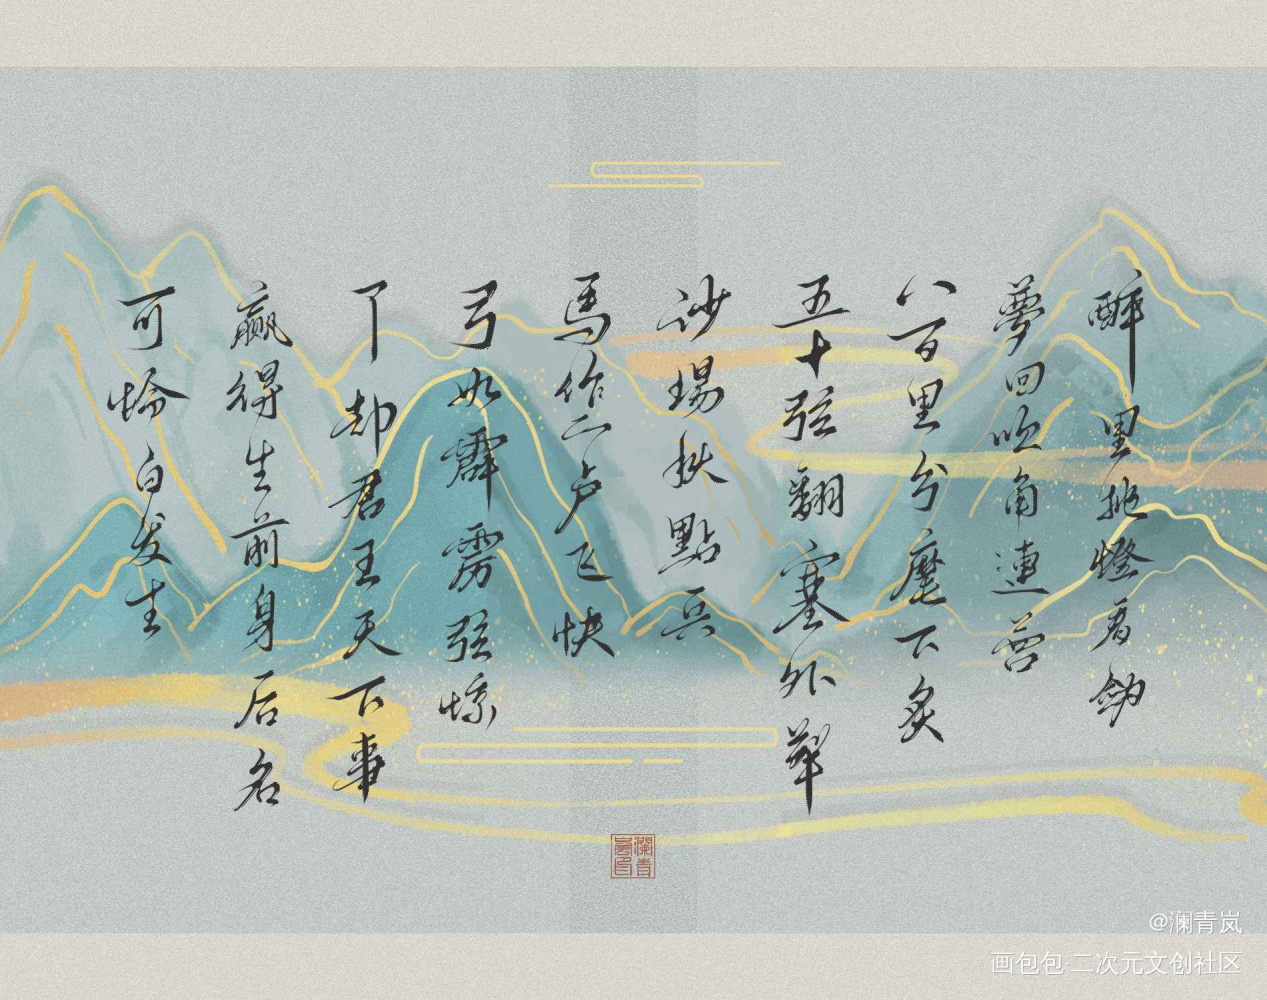 醉里挑燈看劍
夢回吹角連营
八百里分麾下炙
五十弦翻塞外聲
沙場秋點兵
馬作的卢飞快
弓如霹雳弦惊
了却君王天下事
赢得生前身后名
可怜白发生
瀾青嵐印
@澜青岚
画包包·二次元文创社区